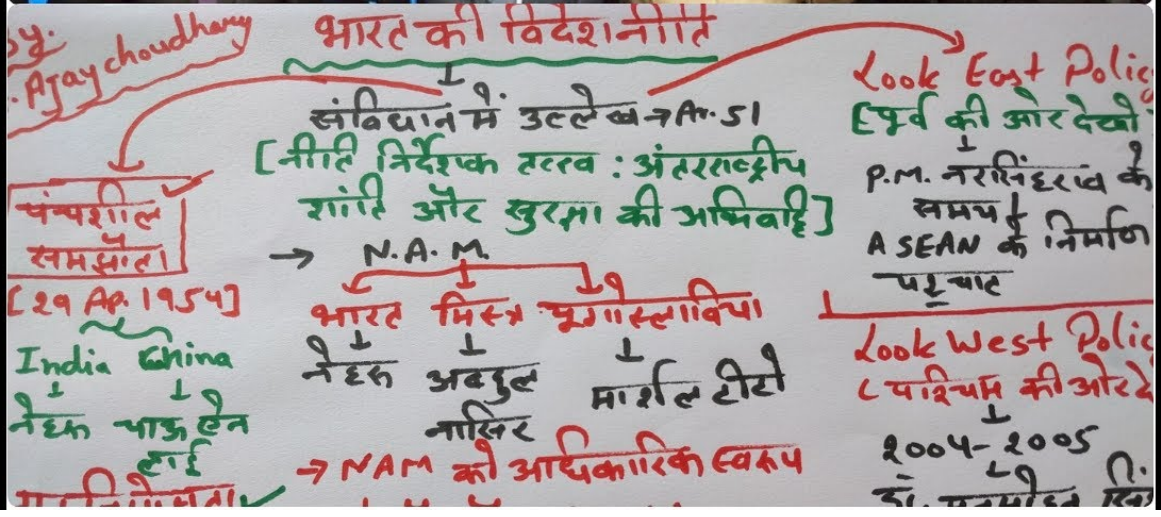 By.
Ajay choudhary
भारत की विदेशनीति
संविधान में उल्लेख → Ar. 51
[नीति निर्देशक तत्त्व : अंतरराष्ट्रीय
शांति और सुरक्षा की अभिवृद्धि]
→ N.A.M.
भारत मिस्त्र यूगोस्लाविया
नेहरू अबदुल मार्शल टीटो
नासिर
→ NAM को आधिकारिक स्वरूप
पंचशील
समझौता
[29 Ap. 1954]
India China
नेहरू चाऊ ऐन
लाई
Look East Polic
[पूर्व की ओर देखो
P.M. नरसिंहराव के
समय
ASEAN के निर्माण
पश्चात
Look West Polic
( पश्चिम की ओर दे
2004-2005
डॉ. मनमोहन सिं